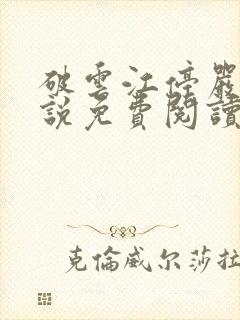 破雲江停嚴
說免費閱讀
克倫威尔莎拉